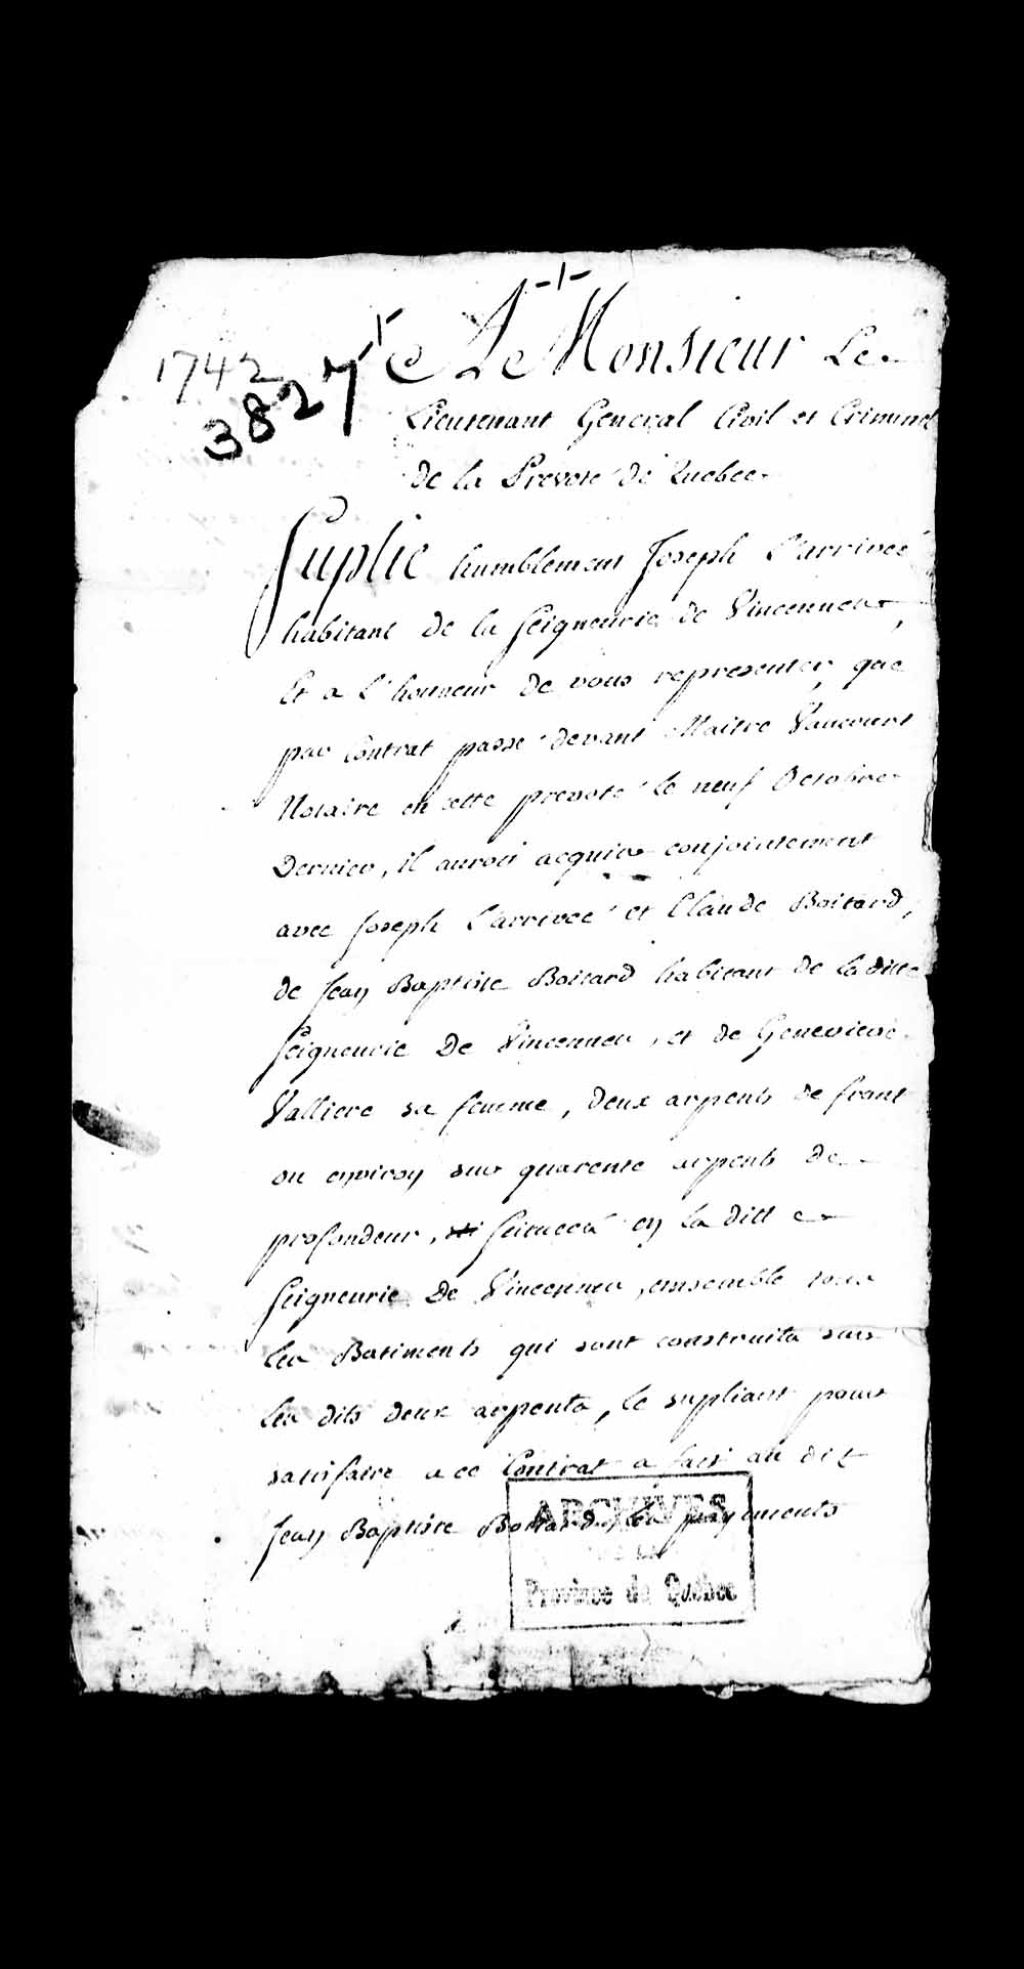 1742
3827
A Monsieur Le
Lieutenant General Civil et Criminel
de la Prevoté de Quebec
Suplie humblement Joseph L'arrivée
habitant de la Seigneurie de Vincennes,
Et a L'honneur de vous representer, que
par Contrat passé devant Maitre
Notaire en cette prevoté le neuf Octobre
Dernier, il auroit acquis conjointement
avec Joseph L'arrivée et Claude Boitard,
de Jean Baptiste Boitard habitant de la ditte
Seigneurie De Vincennes, et de Genevieve
Valliere sa femme, deux arpents de front
ou environ sur quarente arpents de
profondeur, scituées en la ditte
Seigneurie De Vincennes, ensemble tous
les Batiments qui sont construits sur
les dits deux arpents, le supliant pour
satisfaire a ce Contrat a fait au dit
Jean Baptiste Boitard, les payements
ARCHIVES
DE LA
Province de Québec